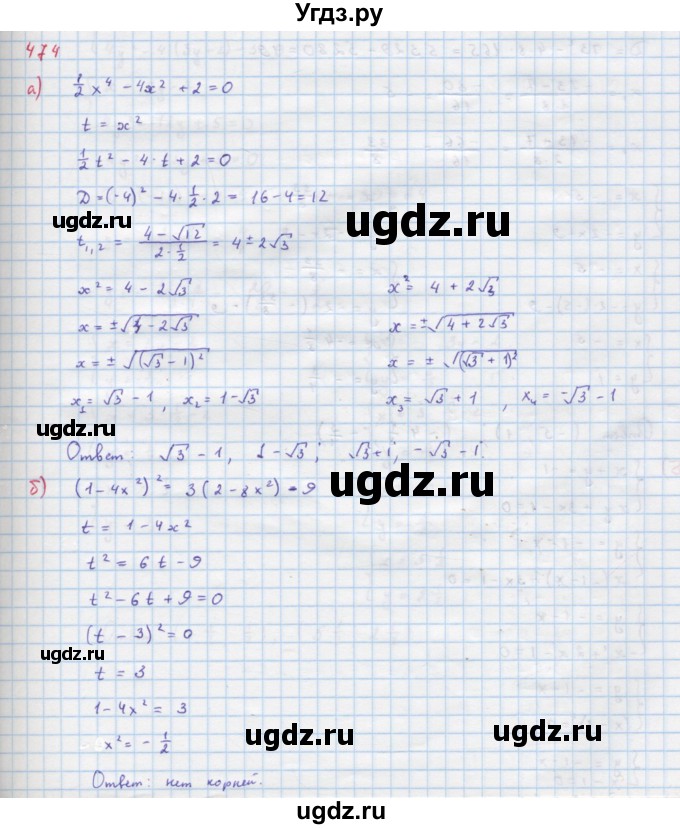 Угдз.ру
474
а) 1/2 x⁴ - 4x² + 2 = 0
t = x²
1/2 t² - 4·t + 2 = 0
D = (-4)² - 4·1/2·2 = 16 - 4 = 12
ugdz.ru ugdz.ru
t₁,₂ = (4 - √12)/(2·1/2) = 4 ± 2√3
x² = 4 - 2√3 x² = 4 + 2√3
x = ±√(4 - 2√3) x = ±√(4 + 2√3)
x = ±√((√3 - 1)²) x = ±√((√3 + 1)²)
x₁ = √3 - 1, x₂ = 1 - √3 x₃ = √3 + 1, x₄ = -√3 - 1
ugdz.ru
Ответ: √3 - 1, 1 - √3; √3 + 1, -√3 - 1.
б) (1 - 4x²)² = 3(2 - 8x²) - 9
ugdz.ru
t = 1 - 4x²
t² = 6t - 9
t² - 6t + 9 = 0
(t - 3)² = 0
ugdz.ru
t = 3
1 - 4x² = 3
ugdz.ru ugdz.ru
x² = - 1/2
Ответ: нет корней.
ugdz.ru